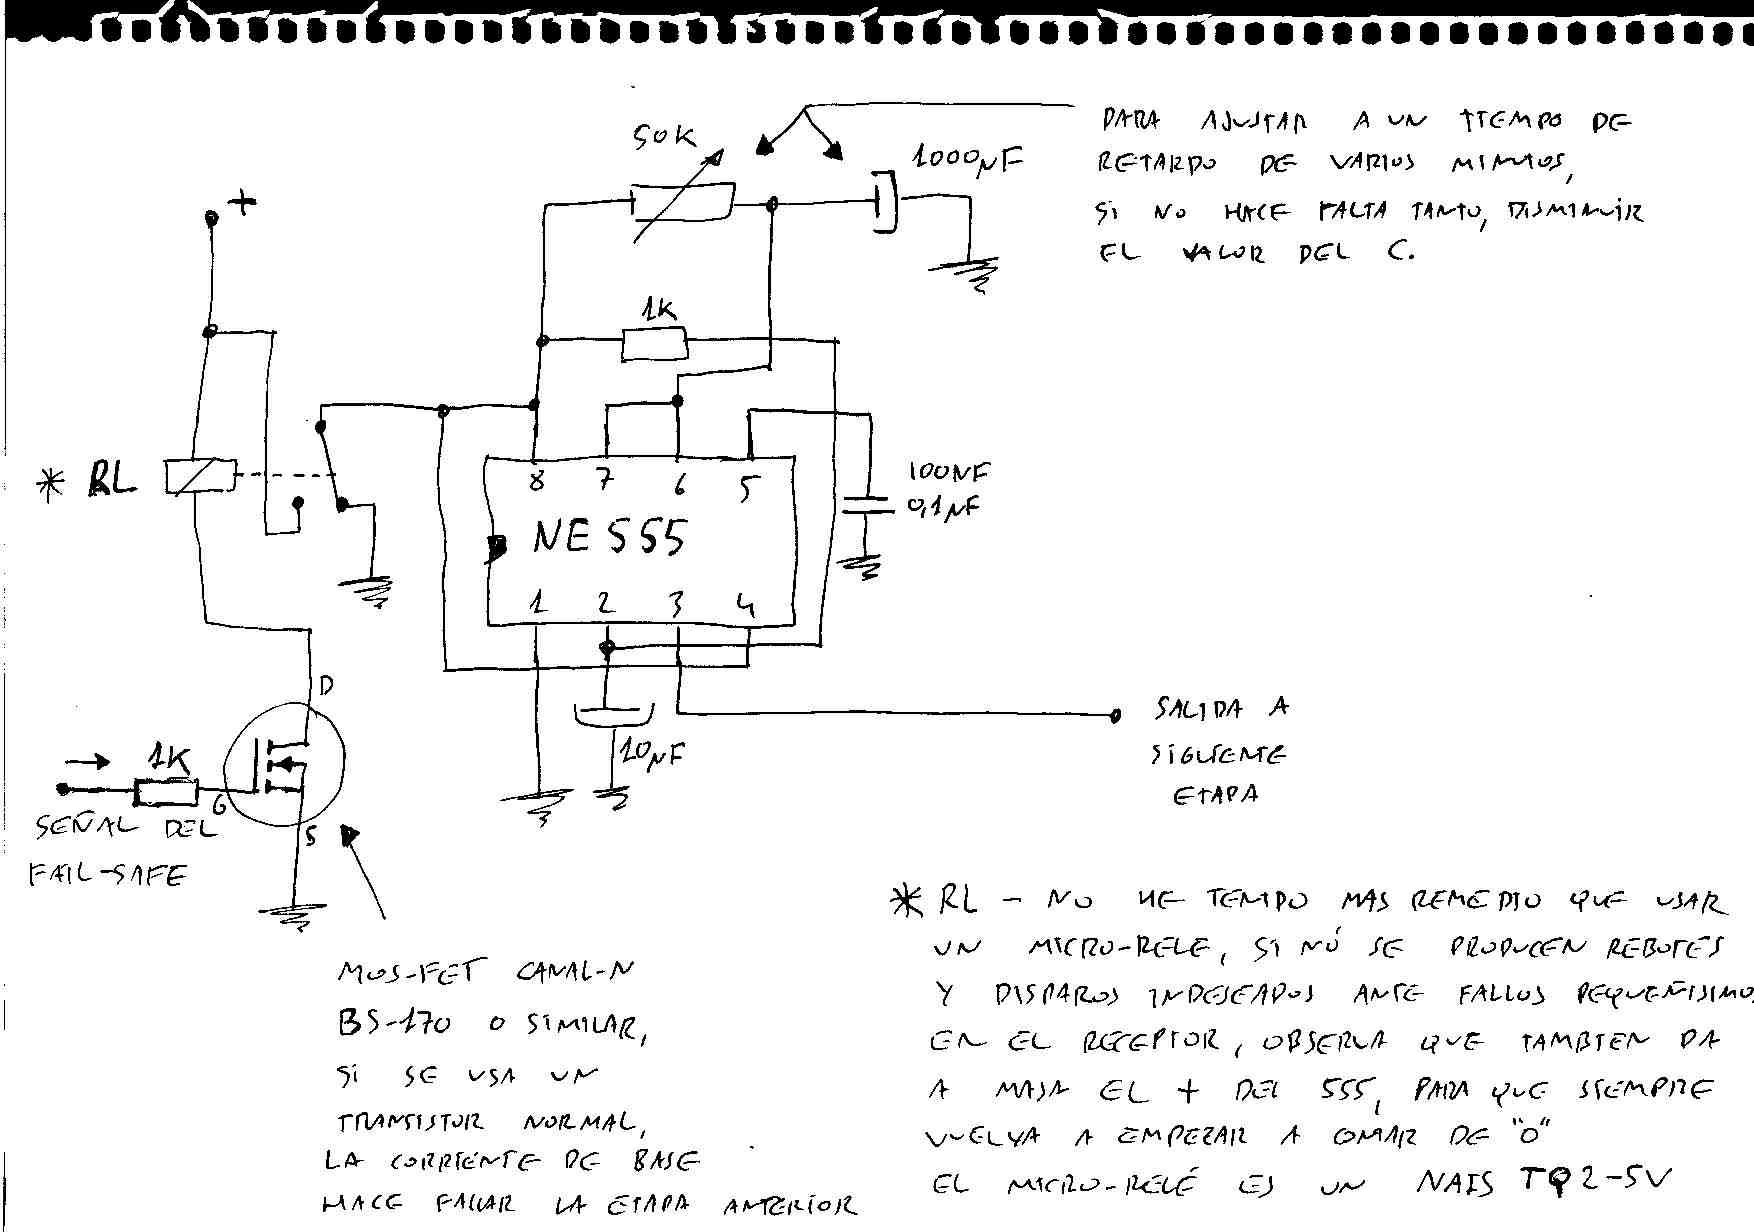 50K
1000µF
PARA AJUSTAR A UN TIEMPO DE
RETARDO DE VARIOS MINUTOS,
SI NO HACE FALTA TANTO, DISMINUIR
EL VALOR DEL C.
+
1K
* RL
8 7 6 5
100NF
0,1µF
NE 555
1 2 3 4
D
SALIDA A
SIGUIENTE
ETAPA
10µF
1K
G
S
SEÑAL DEL
FAIL-SAFE
MOS-FET CANAL-N
BS-170 O SIMILAR,
SI SE USA UN
TRANSISTOR NORMAL,
LA CORRIENTE DE BASE
HACE FALLAR LA ETAPA ANTERIOR
* RL - NO HE TENIDO MAS REMEDIO QUE USAR
UN MICRO-RELE, SI NÓ SE PRODUCEN REBOTES
Y DISPAROS INDESEADOS ANTE FALLOS PEQUEÑISIMO
EN EL RECEPTOR, OBSERVA QUE TAMBIEN DA
A MASA EL + DEL 555, PARA QUE SIEMPRE
VUELVA A EMPEZAR A DE "0"
EL MICRO-RELÉ ES UN NAIS TQ2-5V